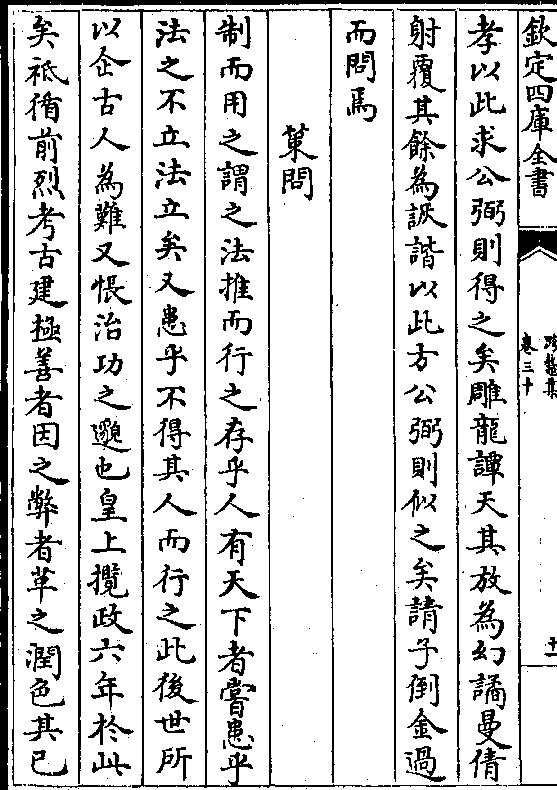 欽定四庫全書
卷三十
十一
孝以此求公弼則得之矣雕龍譚天其放為幻譎曼倩
射覆其餘為詼諧以此方公弼則似之矣請子倒金過
而問焉
策問
制而用之謂之法推而行之存乎人有天下者嘗患乎
法之不立法立矣又患乎不得其人而行之此後世所
以企古人為難又悵治功之邈也皇上攬政六年於此
矣祗循前烈考古建極善者因之弊者革之潤色其已